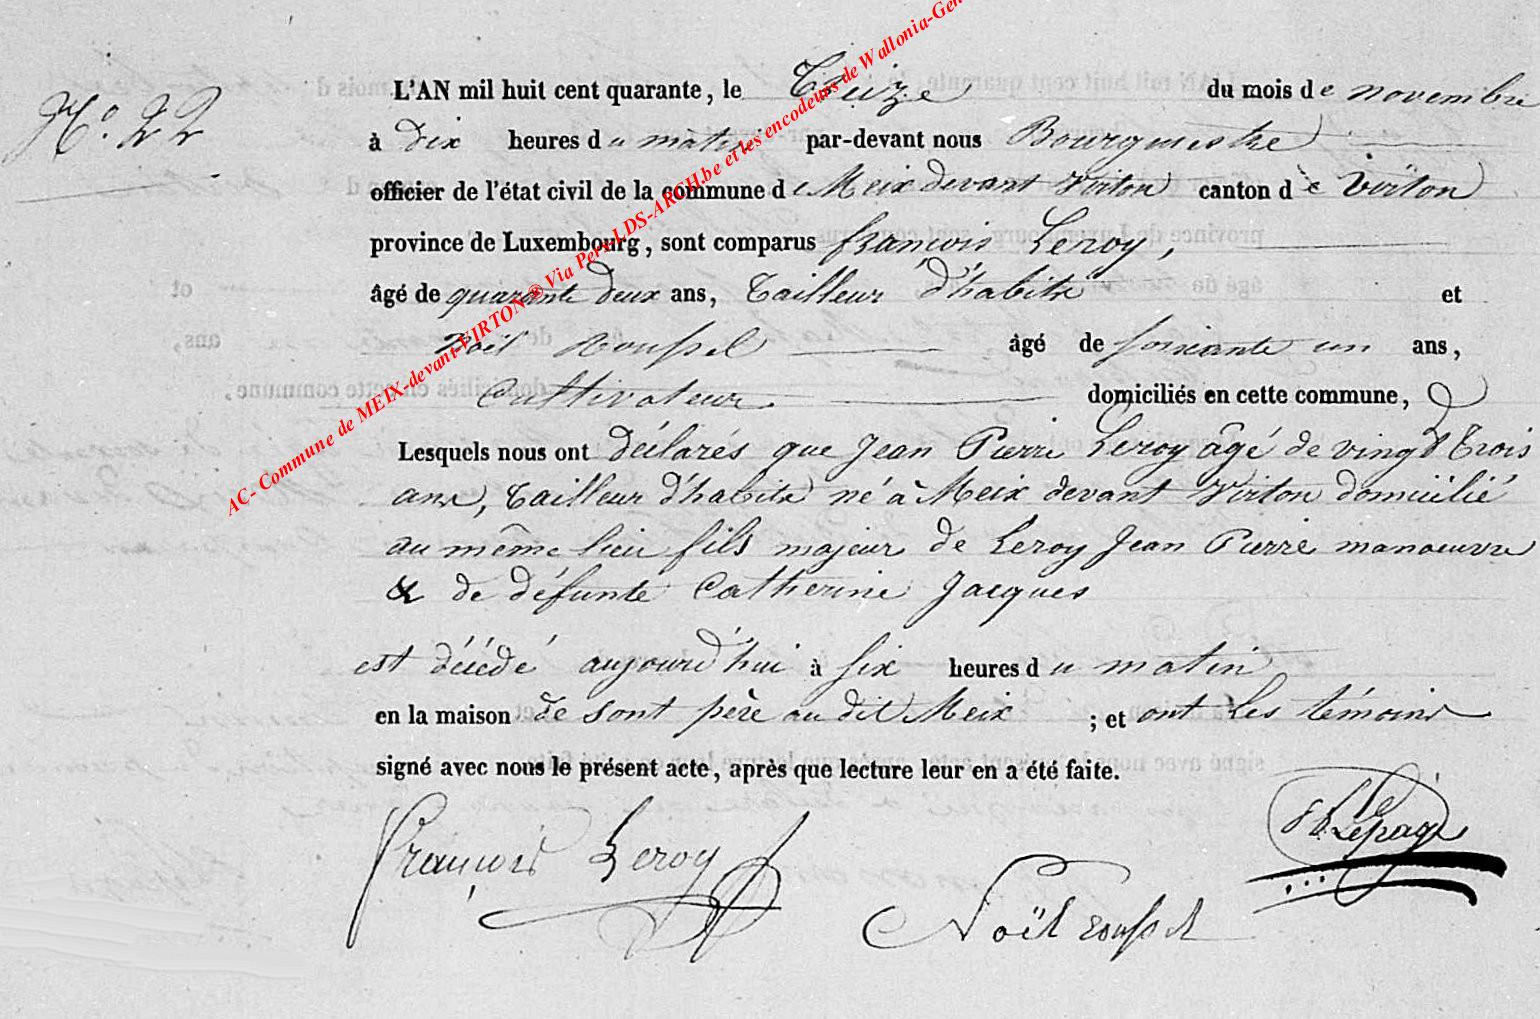 N.º 22
L'AN mil huit cent quarante, le Treize du mois de novembre
à dix heures du matin par-devant nous Bourgmestre
officier de l'état civil de la commune de Meix devant Virton canton de Virton
province de Luxembourg, sont comparus françois Leroy,
âgé de quarante deux ans, Tailleur d'habits et
Noël Roussel âgé de soixante un ans,
Cultivateur domiciliés en cette commune,
Lesquels nous ont déclarés que Jean Pierre Leroy âgé de vingt Trois
ans, Tailleur d'habits né à Meix devant Virton domicilié
au même lieu fils majeur de Leroy Jean Pierre manoeuvre
& de défunte Catherine Jacques
est décédé aujourd'hui à six heures du matin
en la maison de sont père au dit Meix ; et ont Les témoins
signé avec nous le présent acte, après que lecture leur en a été faite.
François Leroy
Lepage
Noël roussel
AC- Commune de MEIX-devant-VIRTON ® Via Pers-LDS-ARCH.be et les encodeurs de Wallonia-Gen